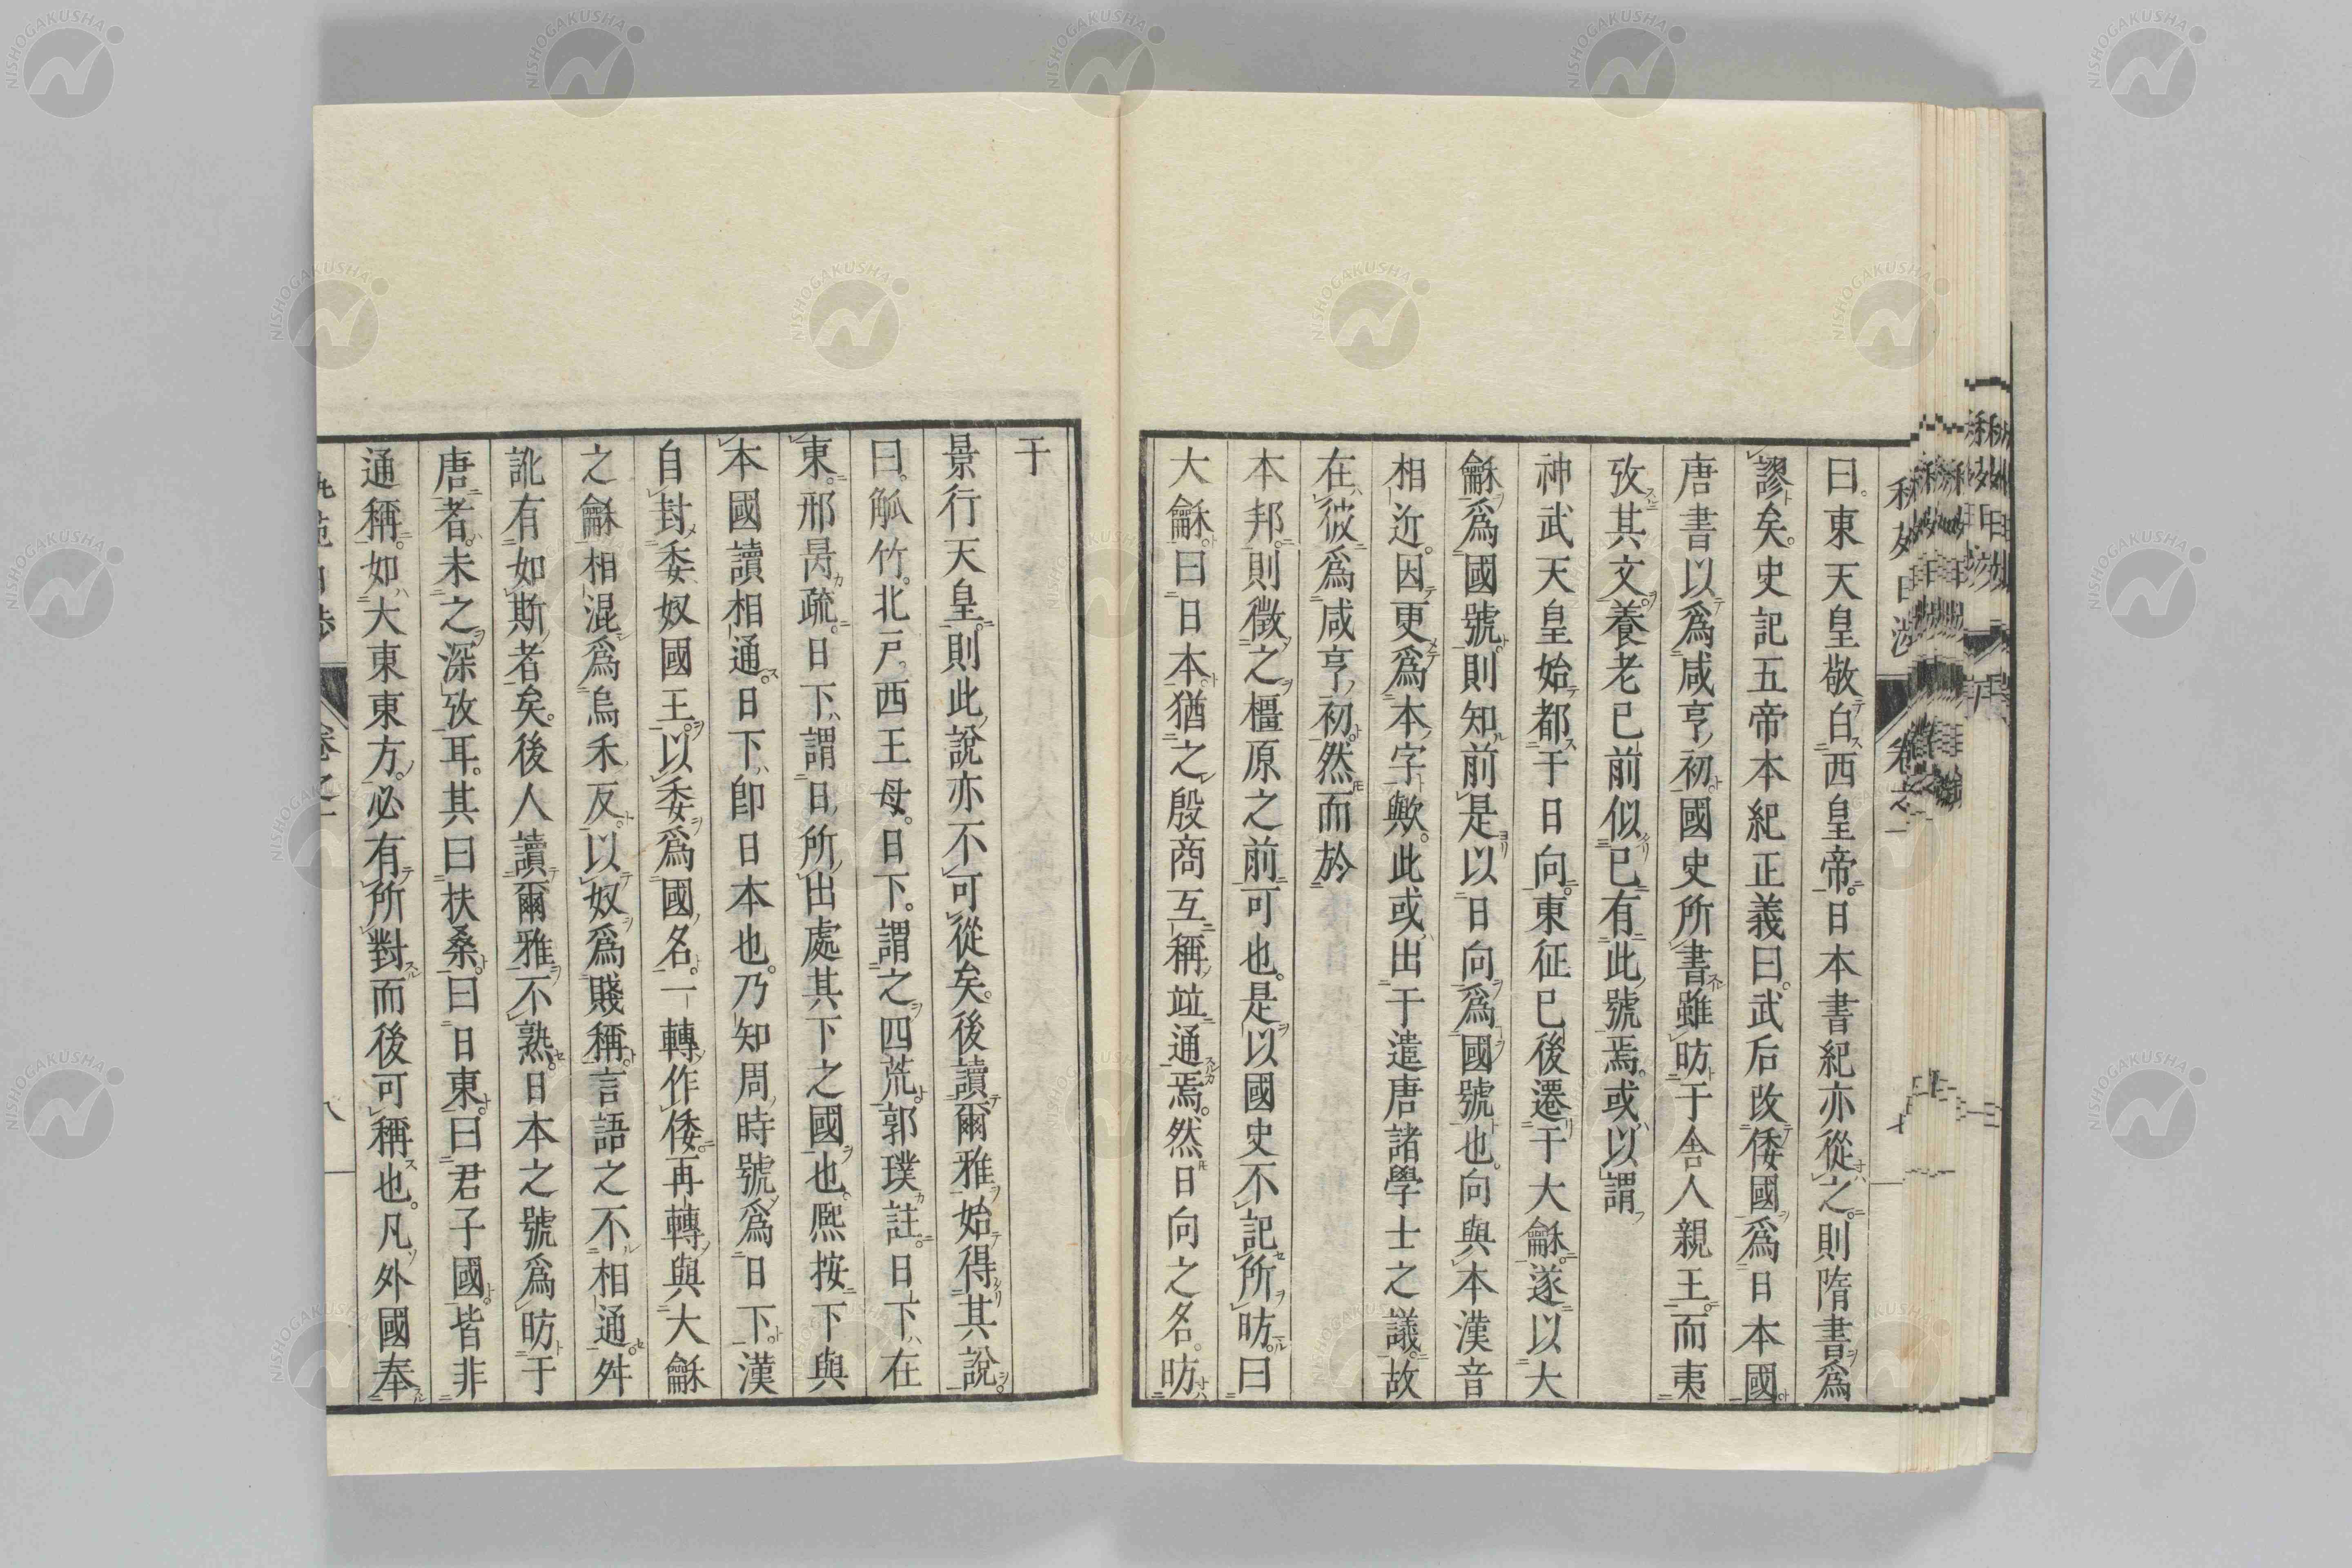 曰。東天皇敬白西皇帝。日本書紀亦從之。則隋書爲
謬矣。史記五帝本紀正義曰。武后改倭國爲日本國。
唐書以爲咸亨初。國史所書雖昉于舎人親王。而夷
攷其文。養老已前似已有此號焉。或以謂
神武天皇始都于日向。東征已後遷于大龢。遂以大
龢爲國號。則知前是以日向爲國號也。向與本漢音
相近。因更爲本字歟。此或出于遣唐諸學士之議。故
在彼爲咸亨初。然而於
本邦。則徵之橿原之前可也。是以國史不記所昉。曰
大龢。曰日本。猶之殷商互稱竝通焉。然日向之名。昉
于
景行天皇。則此說亦不可從矣。後讀爾雅始得其說。
曰。觚竹。北戸。西王母。日下。謂之四荒。郭璞註。日下在
東。邢昺疏。日下謂日所出處其下之國也。熈按下與
本國讀相通。日下卽日本也。乃知周時號爲日下。漢
自封委奴國王。以委爲國名。一轉作倭。再轉與大龢
之龢相混爲烏禾反。以奴爲賤稱。言語之不相通。舛
訛有如斯者矣。後人讀爾雅不熟。日本之號爲昉于
唐者。未之深攷耳。其曰扶桑。曰日東。曰君子國。皆非
通稱。如大東東方。必有所對而後可稱也。凡外國奉
卷之一
八
NISHOGAKUSHA